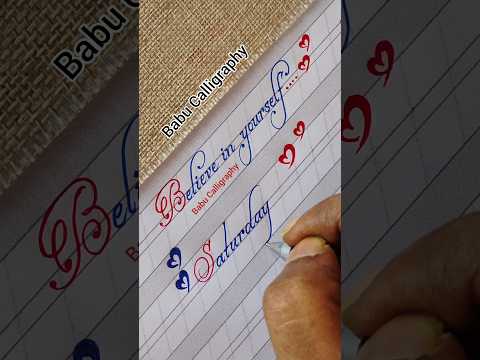 Babu Calligraphy
Believe in yourself....
Babu Calligraphy
Saturday